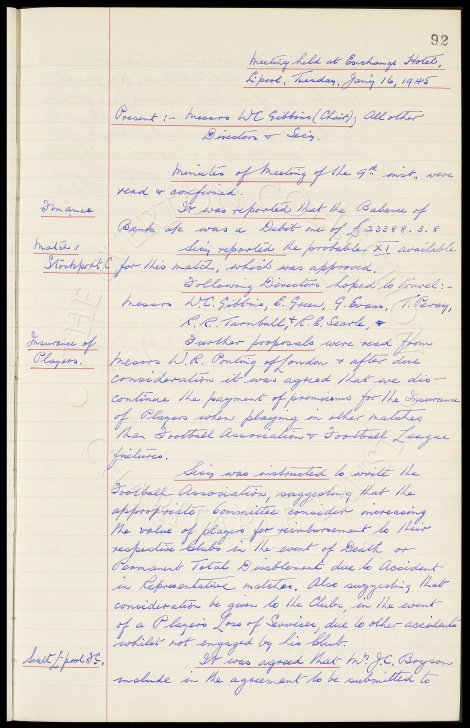 92
Meeting held at Exchange Hotel,
L'pool, Tuesday, Jan'y 16, 1945
Present :- Messrs W.C. Gibbins (Chair); All other
Directors & Sec'y.
Minutes of Meeting of the 9th inst, were
read & confirmed.
Finance
It was reported that the Balance of
Bank a/c was a Debit one of £23388.3.8
Match v
Stockport C
Sec'y reported the probable XI available
for this match, which was approved.
Following Directors hoped to travel:-
Messrs W.C. Gibbins, E. Green, G. Evans, T. Percy,
R.R. Turnbull, & R.E. Searle,
Insurance of
Players.
Further proposals were read from
Messrs W.R. Ponting of London & after due
consideration it was agreed that we dis-
continue the payment of premiums for the Insurance
of Players when playing in other matches
than Football Association & Football League
fixtures.
Sec'y was instructed to write the
Football Association, suggesting that the
appropriate Committee consider increasing
the value of players for reimbursement to their
respective Clubs in the event of Death or
Permanent Total Disablement due to Accident
in Representative matches. Also suggesting that
consideration be given to the Clubs, in the event
of a Players Loss of Services, due to other accidents
whilst not engaged by his Club.
South L'pool F.C.
It was agreed that Mr. J.C. Bryson
include in the agreement to be submitted to